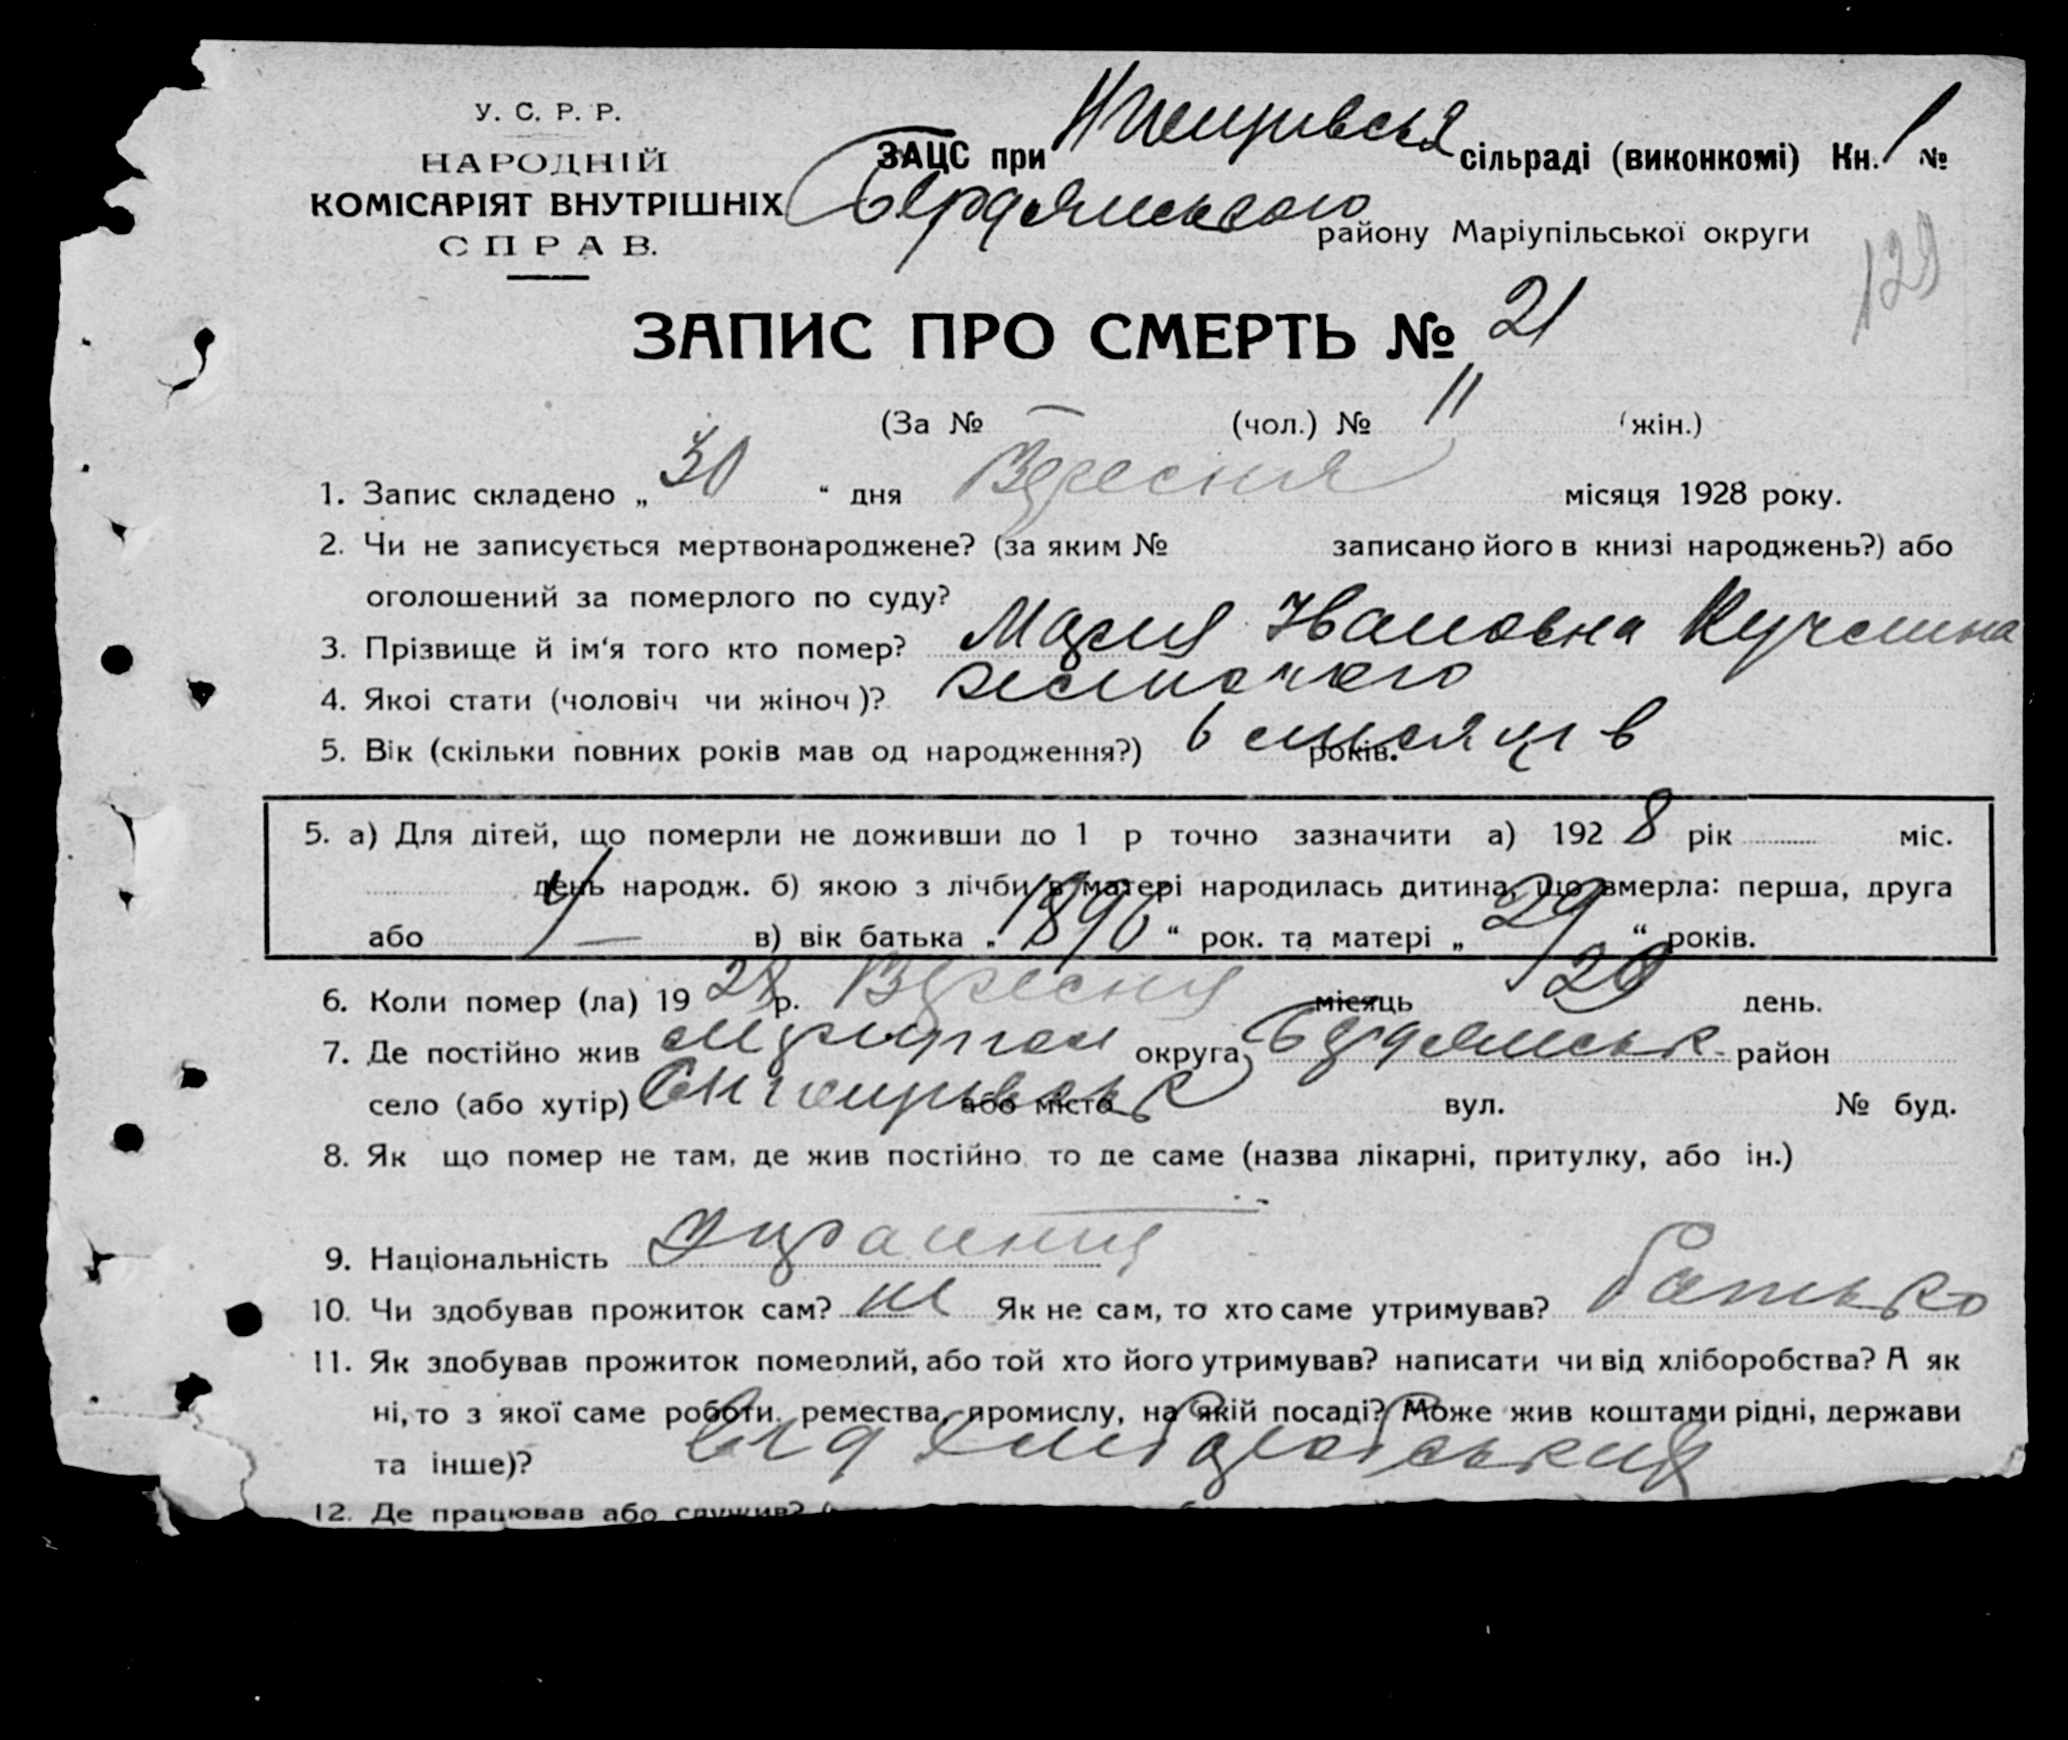 У. С. Р. Р.
НАРОДНІЙ
КОМІСАРІЯТ ВНУТРІШНІХ
СПРАВ.
ЗАЦС при сільраді (виконкомі) Кн. 1 №
Бердянського району Маріупільської округи
129
ЗАПИС ПРО СМЕРТЬ № 21
(За № — (чол.) № 11 (жін.)
1. Запис складено „ 30 “ дня Вересня місяця 1928 року.
2. Чи не записується мертвонароджене? (за яким № записано його в книзі народжень?) або
оголошений за померлого по суду?
3. Прізвище й ім‘я того кто помер? Мария Івановна
4. Якоі стати (чоловіч чи жіноч)? жіночого
5. Вік (скільки повних років мав од народження?) 6 місяців років.
5. а) Для дітей, що померли не доживши до 1 р точно зазначити а) 192 8 рік міс.
день народж. б) якою з лічби в матері народилась дитина, що вмерла: перша, друга
або 4 — в) вік батька „ 1896 “ рок. та матері „ 29 “ років.
6. Коли помер (ла) 19 28 р. Вересня місяць 29 день.
7. Де постійно жив округа, Бердянськ район
село (або хутір) або місто вул. № буд.
8. Як що помер не там, де жив постійно то де саме (назва лікарні, притулку, або ін.)
9. Національність Украинка
10. Чи здобував прожиток сам? ні Як не сам, то хто саме утримував? батько
11. Як здобував прожиток померлий, або той хто його утримував? написати чи від хліборобства? А як
ні, то з якої саме роботи, ремества, промислу, на якій посаді? Може жив коштами рідні, держави
та інше)? від
12. Де працював або служив?